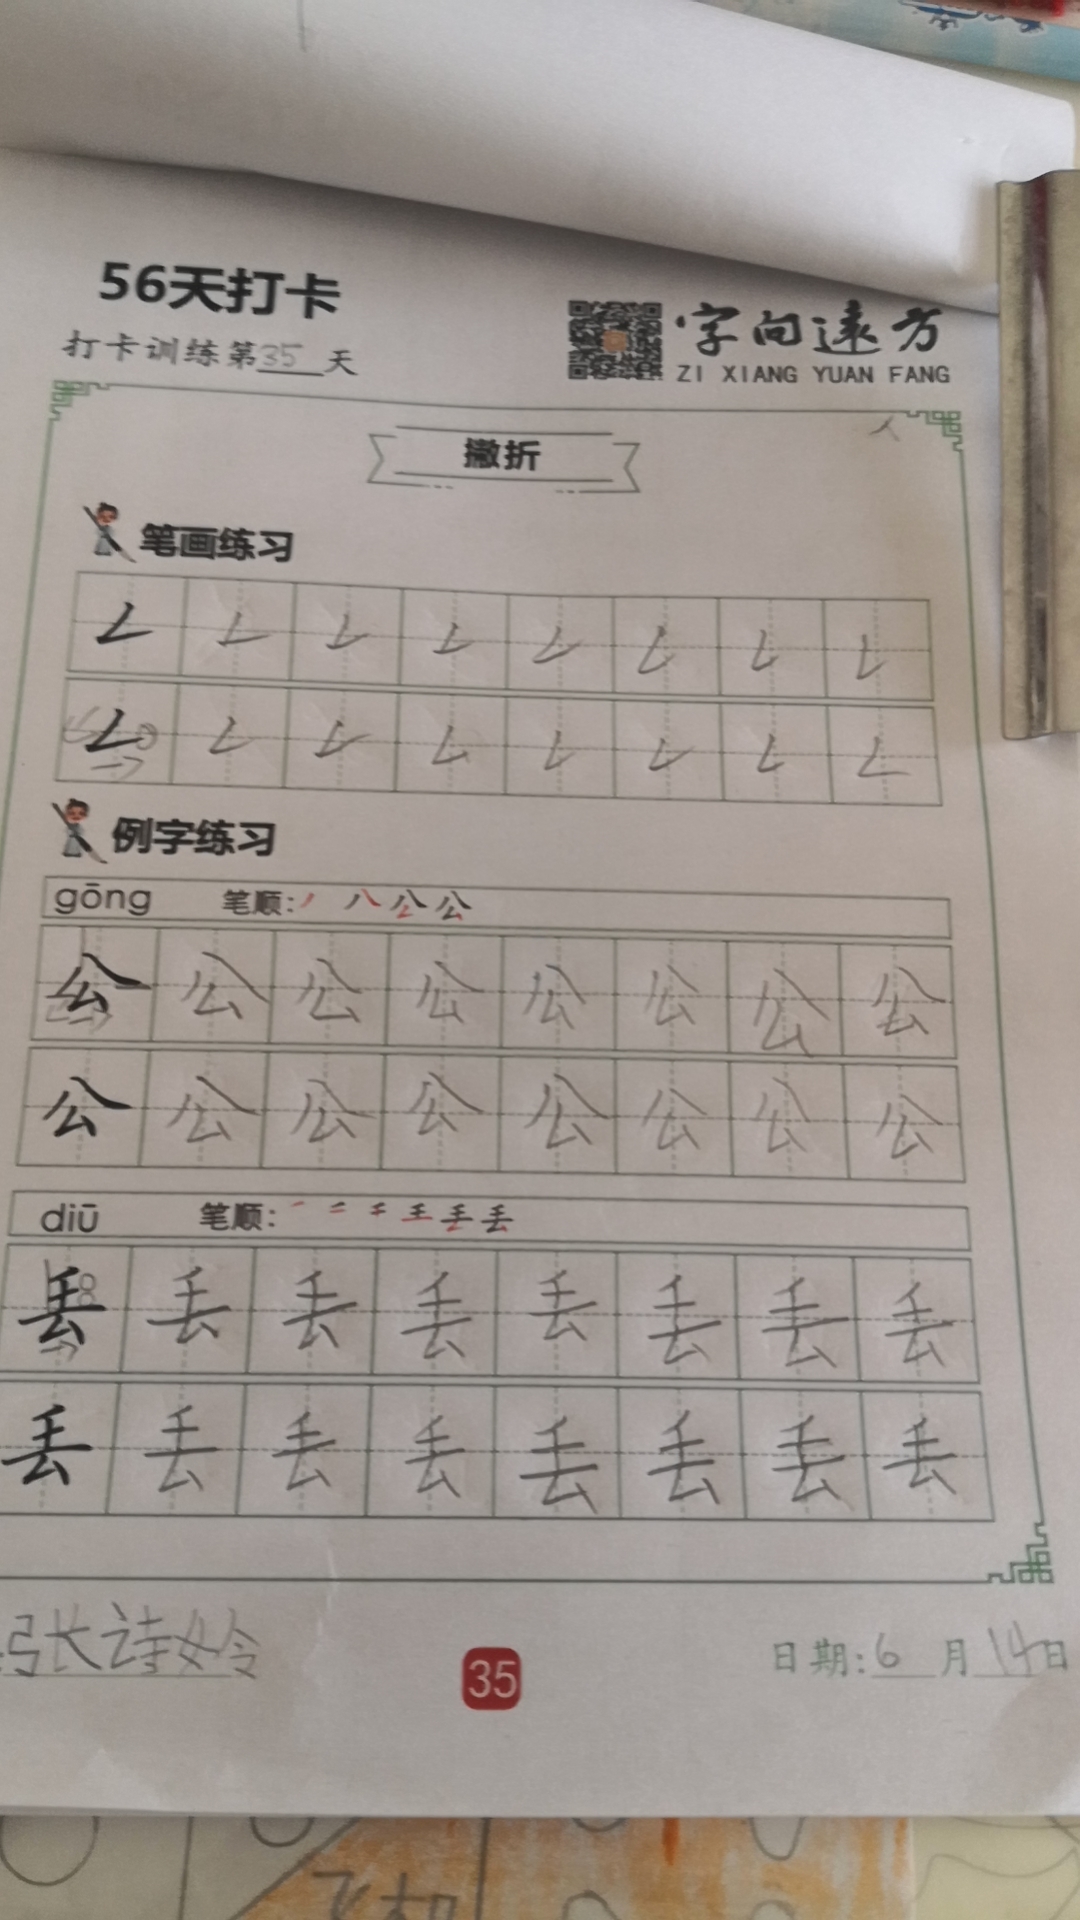 56天打卡
字向远方
打卡训练第35天
ZI XIANG YUAN FANG
人
撇折
笔画练习
例字练习
gōng 笔顺:
公 公 公 公 公 公 公 公
公 公 公 公 公 公 公 公
diū 笔顺:
丢 丢 丢 丢 丢 丢 丢 丢
丢 丢 丢 丢 丢 丢 丢 丢
张诗妗
35
日期:6月14日